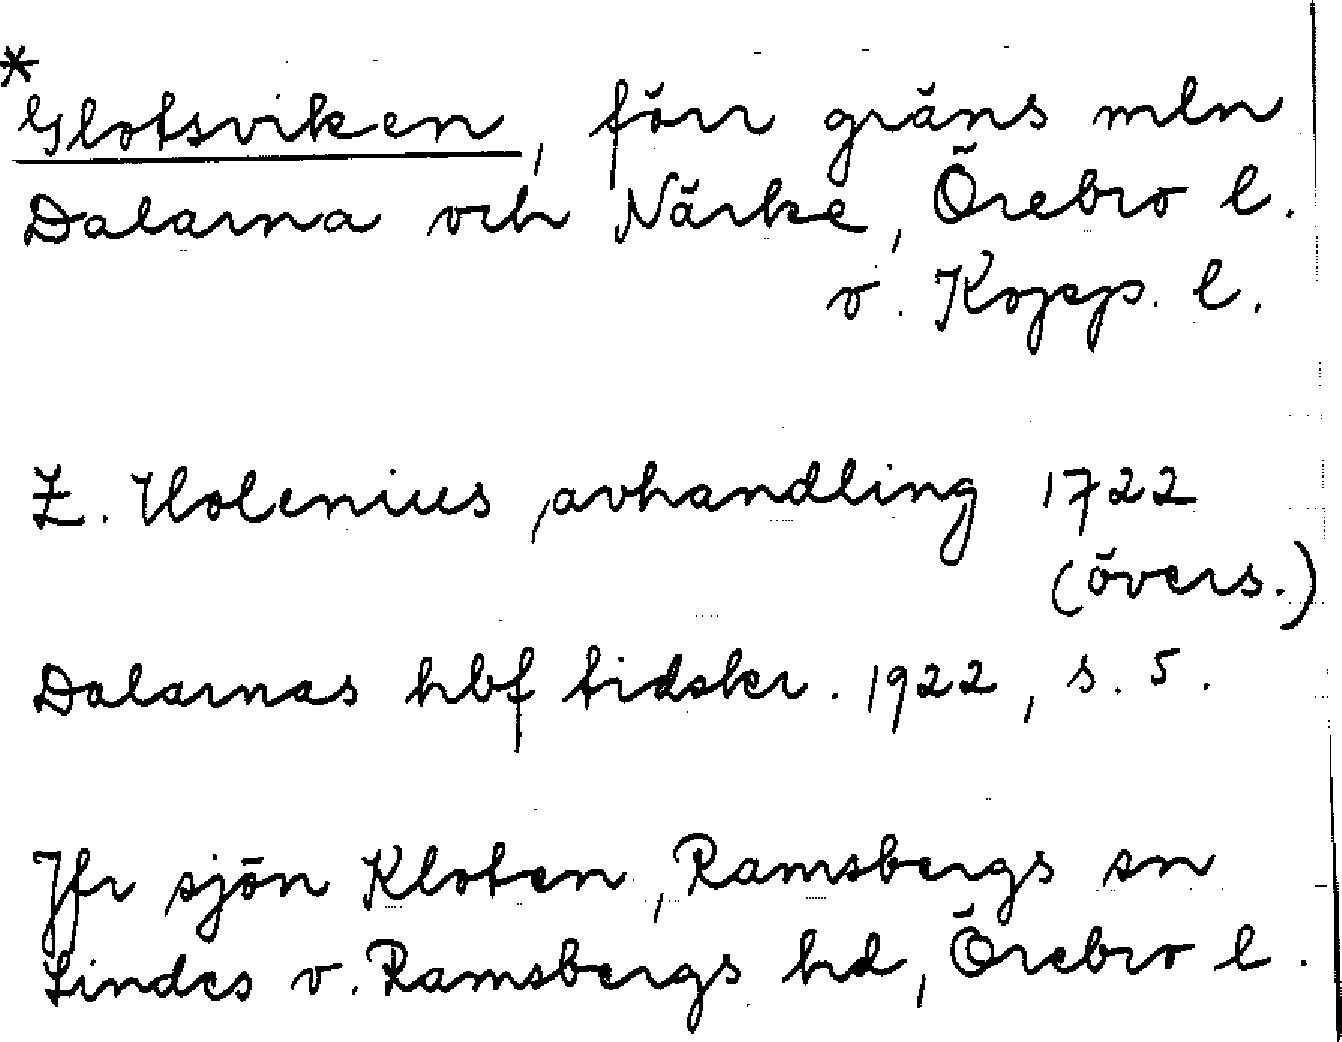 *
Glotsviken, förr gräns mln
Dalarna och Närke, Örebro l.
o. Kopp. l.
Z. Holenius, avhandling 1722
(övers.)
Dalarnas hbf tidskr. 1922, s. 5.
Jfr sjön Kloten, Ramsbergs sn
Lindes o. Ramsbergs hd, Örebro l.